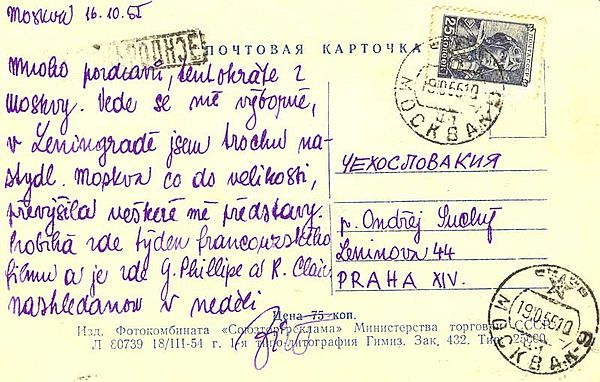 Moskva 16.10.55
ЭКСПОРТ
ПОЧТОВАЯ КАРТОЧКА
25
МОСКВА
191055
Mnoho pozdravů, tentokráte z
Moskvy. Vede se mě výborně,
v Leningradě jsem trochu na-
stydl. Moskva co do velikosti,
převýšila veškeré mé představy.
Probíhá zde týden francouzského
filmu a je zde G. Phillipe a R. Clair.
nashledanou v neděli
ЧЕХОСЛОВАКИЯ
p. Ondřej Suchý
Leninova 44
PRAHA XIV.
Цена 75 коп.
Изд. Фотокомбината «Союзторгреклама» Министерства торговли СССР
Л 80739 18/III-54 г. 1-я типо-литография Гимиз. Зак. 432. Тир. 25000
МОСКВА-9
191055